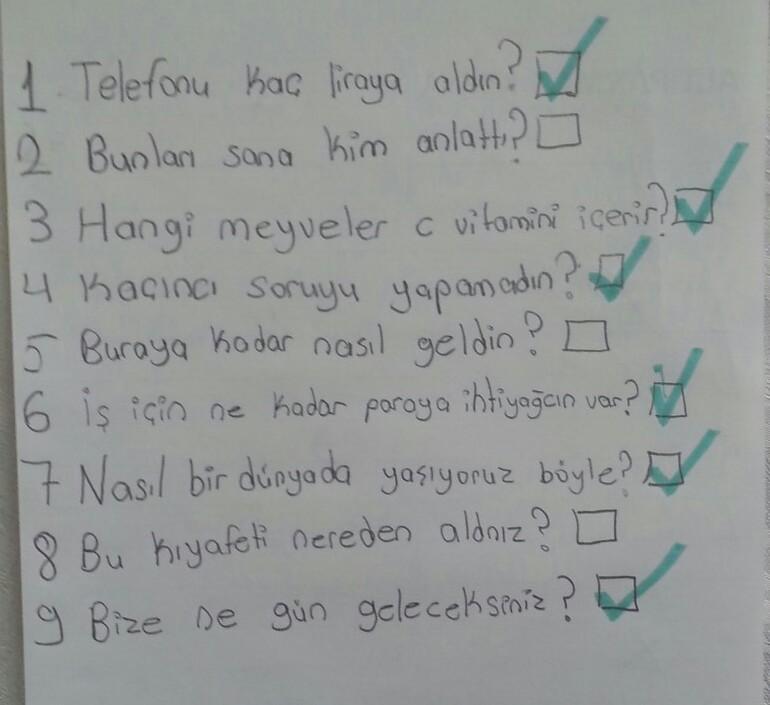 1 Telefonu kaç liraya aldın?
2 Bunları sana kim anlattı?
3 Hangi meyveler c vitamini içerir?
4 Kaçıncı soruyu yapamadın?
5 Buraya kadar nasıl geldin?
6 iş için ne kadar paraya ihtiyağcın var?
7 Nasıl bir dünyada yaşıyoruz böyle?
8 Bu kıyafeti nereden aldnız?
9 Bize ne gün geleceksiniz?